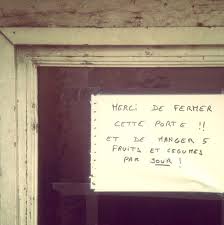 MERCI DE FERMER
CETTE PORTE !!
ET DE MANGER 5
FRUITS ET LEGUMES
PAR JOUR !